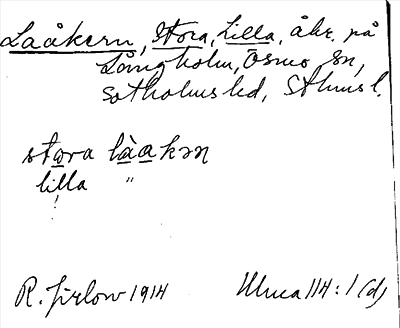 Laåkern, Stora, Lilla, åkr. på
Långholm, Ösmo sn,
Sotholms hd, Sthms l.
stora làakən
lilla "
R. Jirlow 1914
114:1 (d)